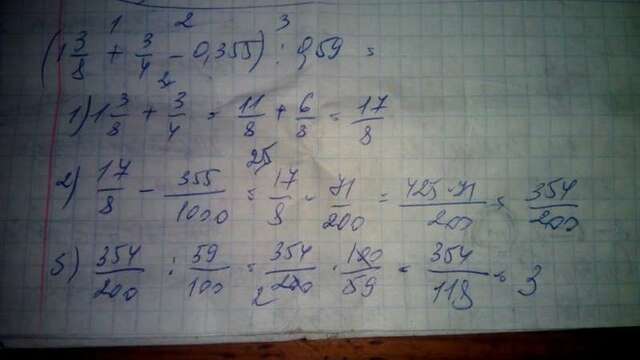 1 2 3
(1 3/8 + 3/4 - 0,355) : 0,59 =
1) 1 3/8 + 3/4 = 11/8 + 6/8 = 17/8
2) 17/8 - 355/1000 = 17/8 - 71/200 = 425-71/200 = 354/200
3) 354/200 : 59/100 = 354/200 · 100/59 = 354/118 = 3